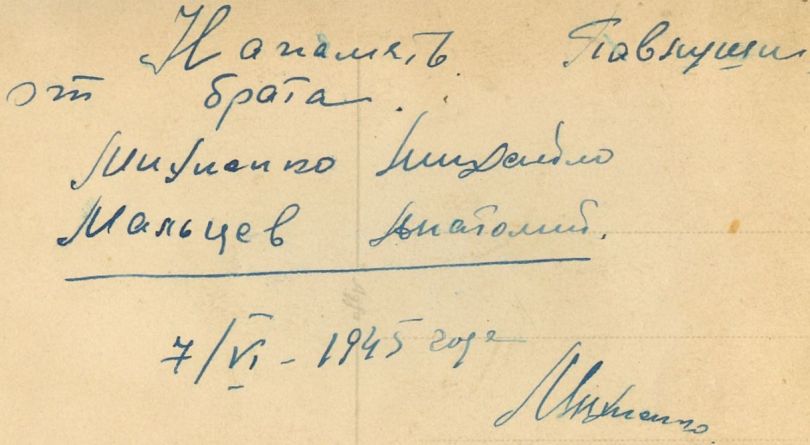 На память Павлуши
от брата.
Михненко Михайло
Мальцев Анатолий.
7/VI - 1945 года
Михненко